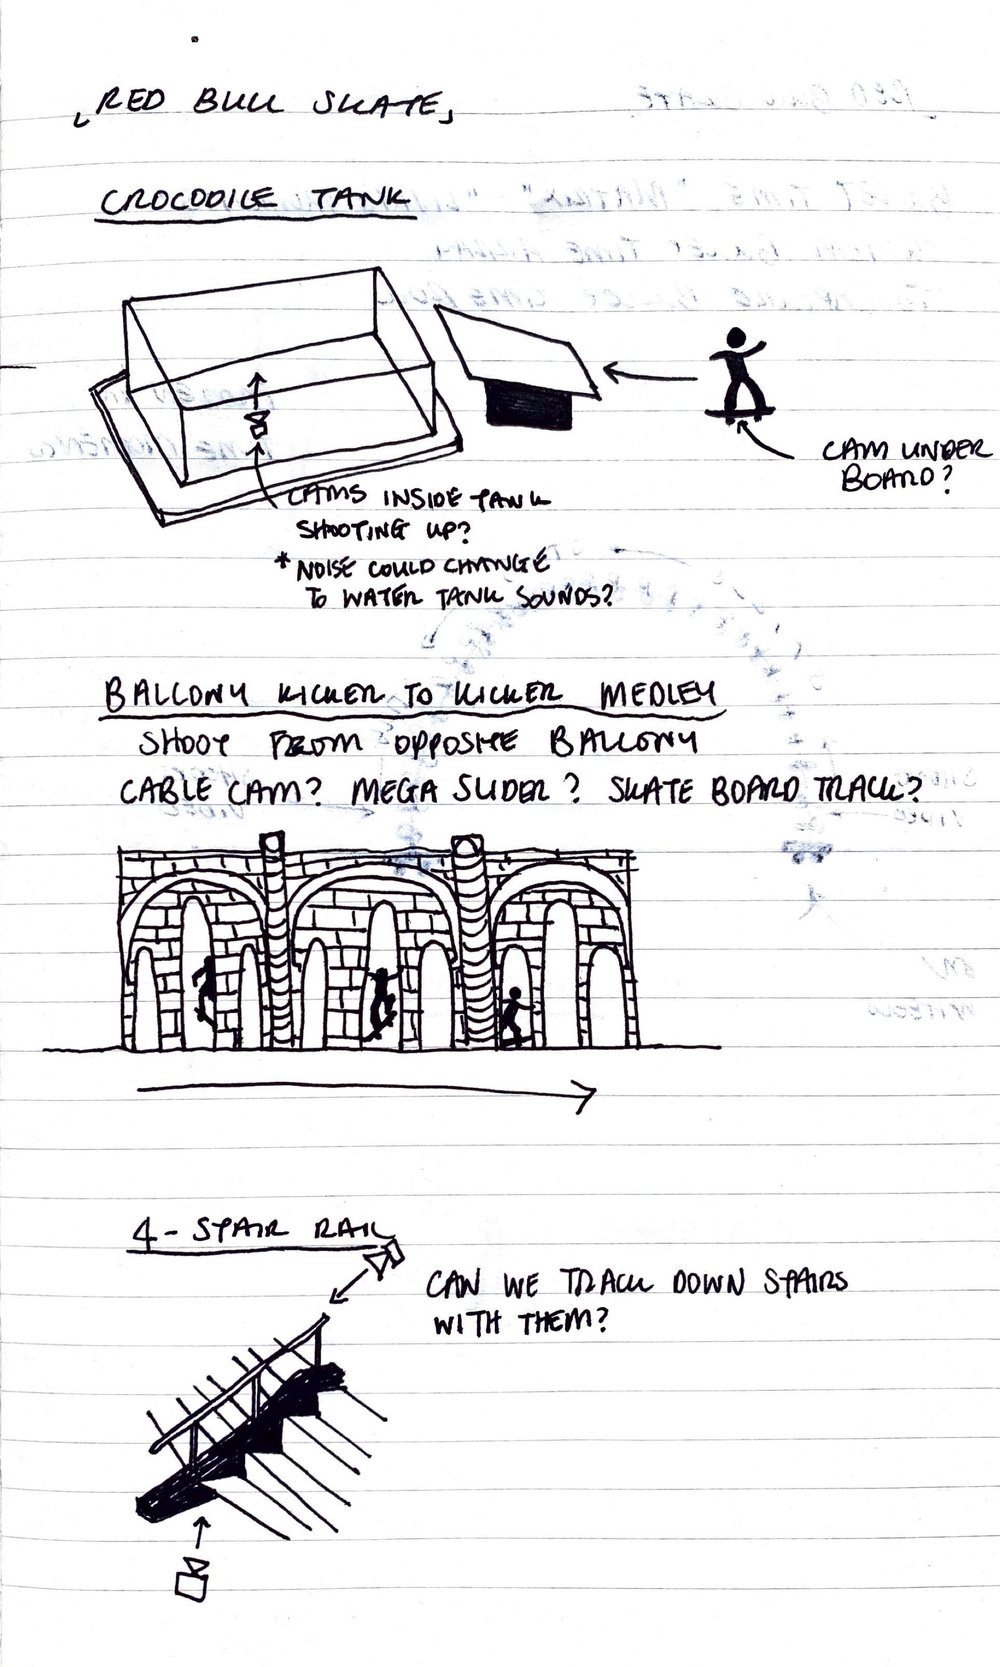 「RED BULL SKATE」
CROCODILE TANK
CAM UNDER
BOARD?
CAMS INSIDE TANK
SHOOTING UP?
* NOISE COULD CHANGE
TO WATER TANK SOUNDS?
BALCONY KICKER TO KICKER MEDLEY
SHOOT FROM OPPOSITE BALCONY
CABLE CAM? MEGA SLIDER? SKATE BOARD TRACK?
4-STAIR RAIL
CAN WE TRACK DOWN STAIRS
WITH THEM?